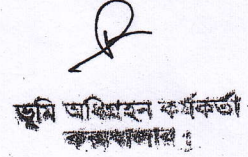 ভূমি অধিগ্রহন কর্মকর্তা
কক্সবাজার।